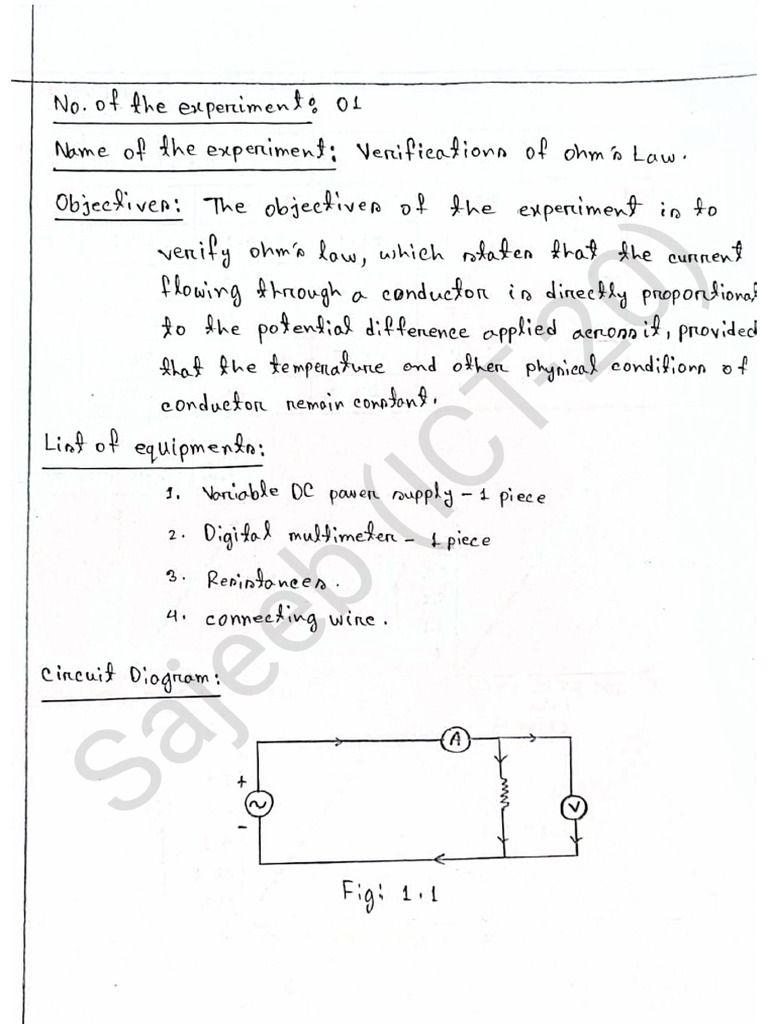 No. of the experiment: 01
Name of the experiment: Verifications of ohm's Law.
Objectives: The objectives of the experiment is to
verify ohm's law, which states that the current
flowing through a conductor is directly proportional
to the potential difference applied across it, provided
that the temperature and other physical conditions of
conductor remain constant.
List of equipments:
1. Variable DC power supply - 1 piece
2. Digital multimeter - 1 piece
3. Resistances.
4. connecting wire.
Circuit Diagram:
A
+
V
-
Fig: 1.1
Sajeeb (ICT-20)